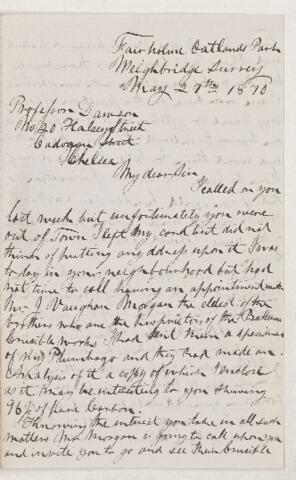 Fairholme Oatlands Park
Weighbridge Surrey
May 27th 1870
Professor Dawson
No 20 Halsey Street
Cadogan Street
Chelsea
My dear Sir
I called on you
last week but unfortunately you were
out of Town I left my card but did not
think of putting any address upon it I was
to day in your neighbourhood but had
not time to call having an appointment with
Mr J Vaughan Morgan the eldest of the
brothers who are the proprietors of the Battersea
Crucible works I had sent them a specimen
of my Plumbago and they had made an
Analysis of it a copy of which I enclose
as it may be interesting to you shewing
96 % of pure Carbon.
Knowing the interest you take in all such
matters Mr Morgan is going to call upon you
and invite you to go and see their Crucible